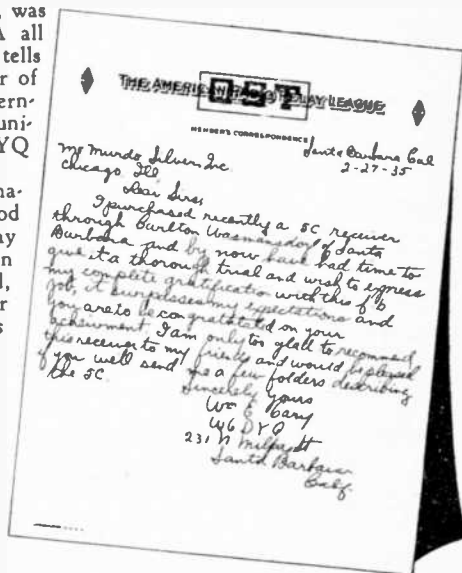 , was
A all
tells
r of
ern-
uni-
YQ
na-
od
ay
n
l,
r
s
THE AMERICAN RADIO RELAY LEAGUE
QST
MEMBER'S CORRESPONDENCE
Santa Barbara Cal
2-27-35
Mc Murdo Silver, Inc
Chicago Ill
Dear Sirs,
I purchased recently a 5C receiver
through Carlton Wasmansdorf of Santa
Barbara and by now have had time to
give it a thorough trial and wish to express
my complete gratification with this f b
job, it surpasses my expectations and
you are to be congratulated on your
achievment. I am only too glad to recommend
this receiver to my friends and would be pleased
if you well send me a few folders describing
the 5C
Sincerely yours
Wm E Cary
W6DYQ
231 N Milpas St
Santa Barbara
Calif.